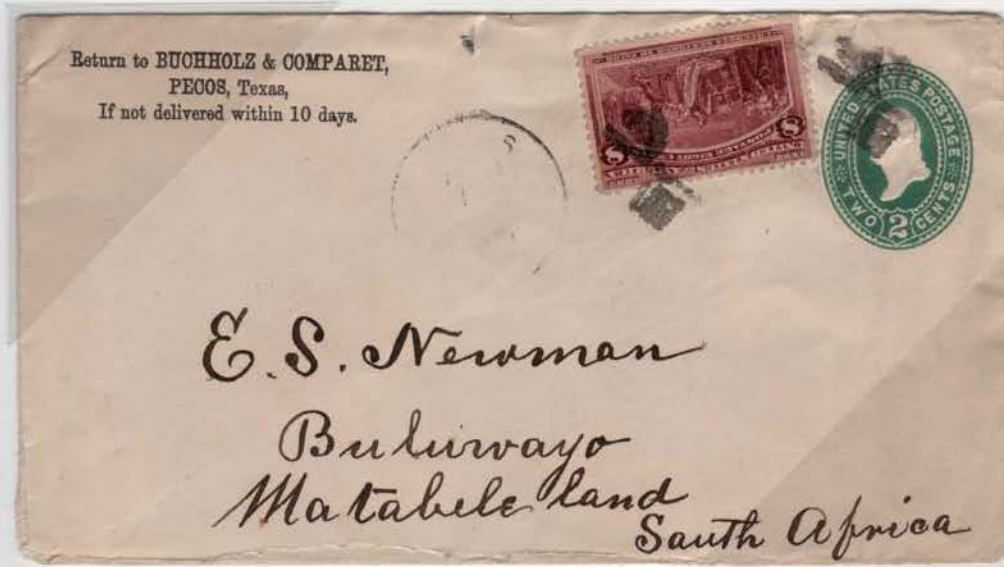 Return to BUCHHOLZ & COMPARET,
PECOS, Texas,
If not delivered within 10 days.
S
8 8
UNITED STATES POSTAGE
TWO 2 CENTS
E. S. Newman
Buluwayo
Matabele land
South Africa